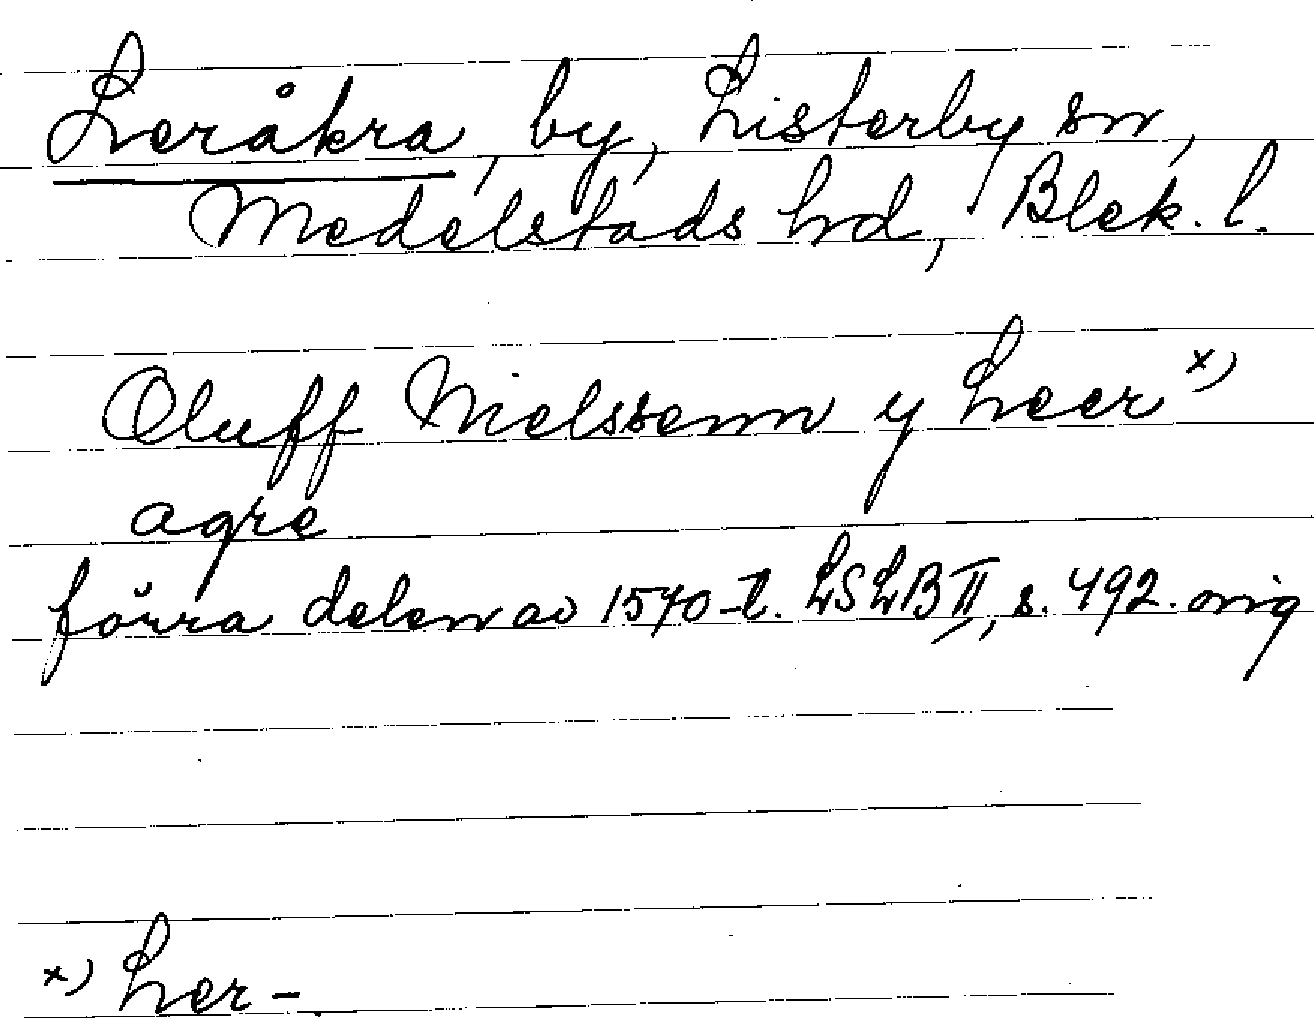 Leråkra, by, Listerby sn,
Medelstads hd, Blek. l.
Oluff Nielssenn y Leer x)
agre
förra delen av 1570-t. LSLB II, s. 492. orig
x) Ler-